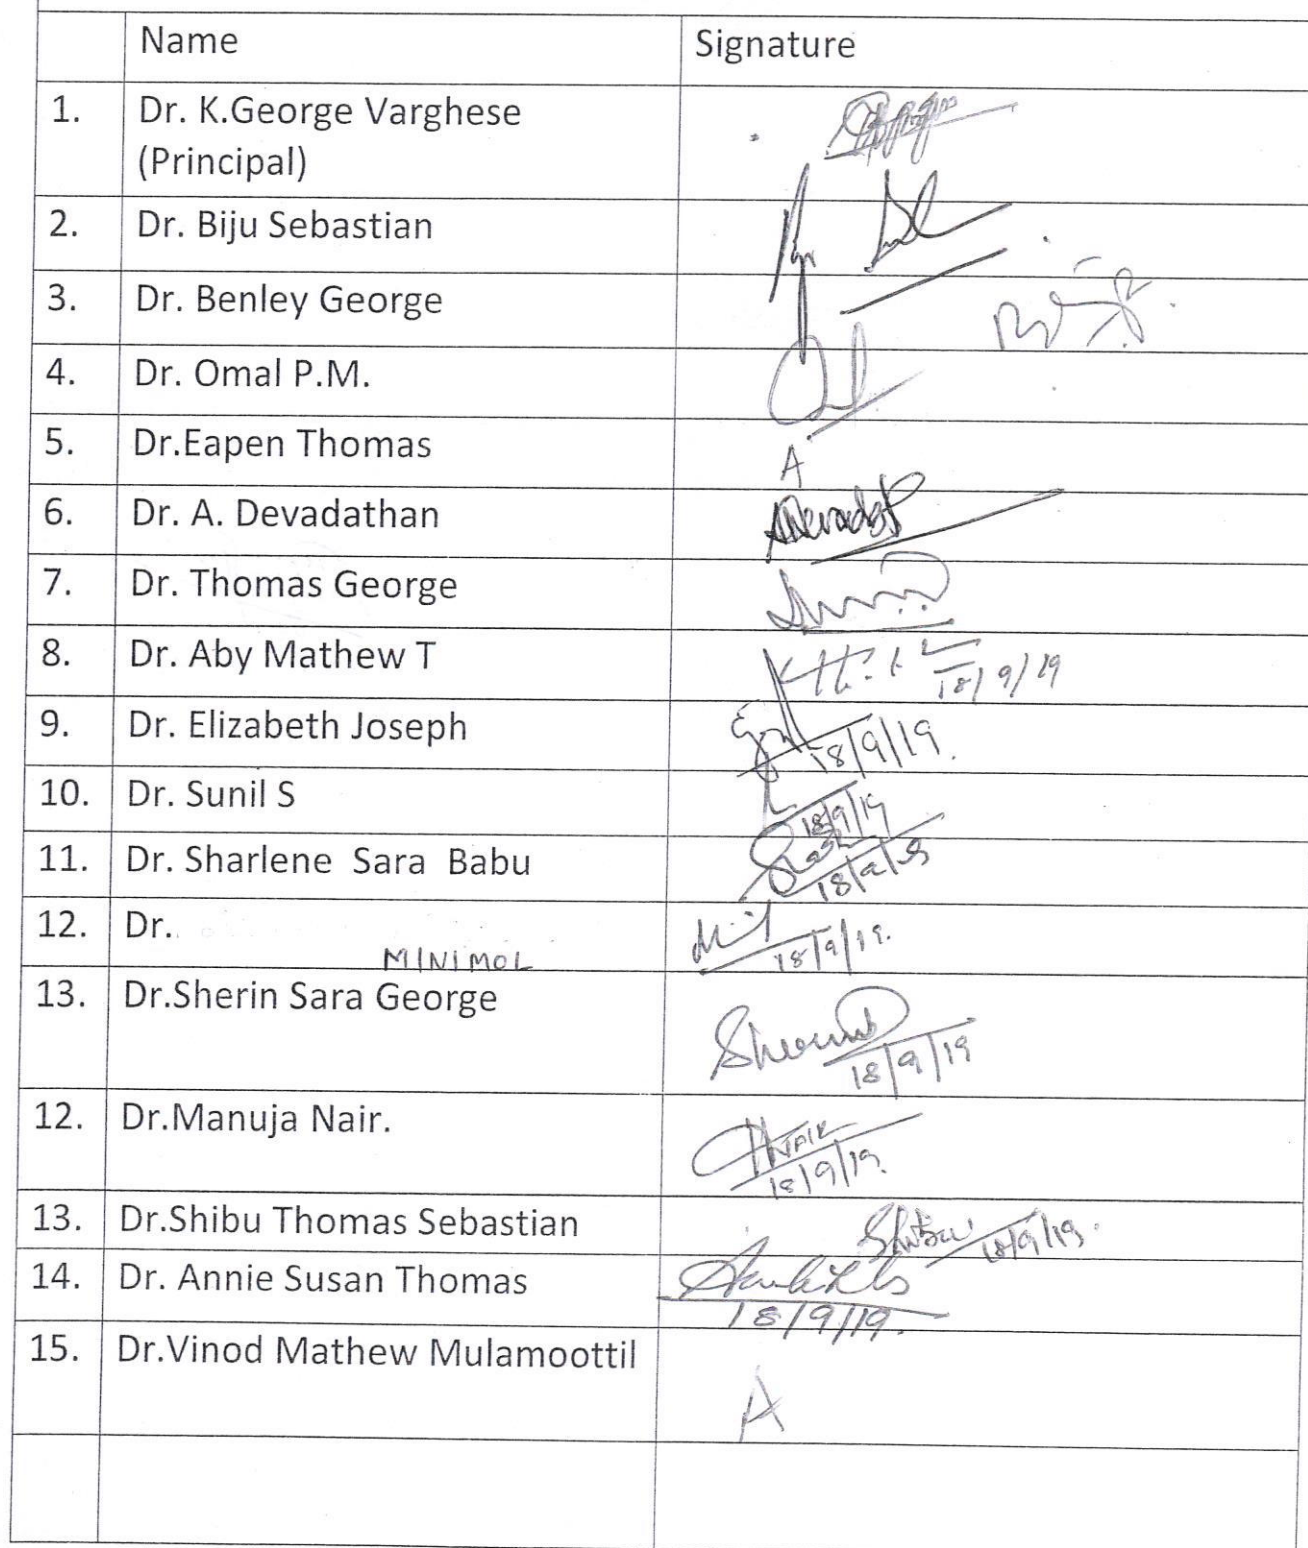 Name Signature
1. Dr. K.George Varghese
(Principal)
2. Dr. Biju Sebastian
3. Dr. Benley George
4. Dr. Omal P.M.
5. Dr.Eapen Thomas A
6. Dr. A. Devadathan
7. Dr. Thomas George
8. Dr. Aby Mathew T 18/9/19
9. Dr. Elizabeth Joseph 18/9/19.
10. Dr. Sunil S 18/9/19
11. Dr. Sharlene Sara Babu
12. Dr. MINIMOL 18/9/19.
13. Dr.Sherin Sara George 18/9/19
12. Dr.Manuja Nair. 18/9/19.
13. Dr.Shibu Thomas Sebastian Shibu 18/9/19.
14. Dr. Annie Susan Thomas 18/9/19.
15. Dr.Vinod Mathew Mulamoottil A